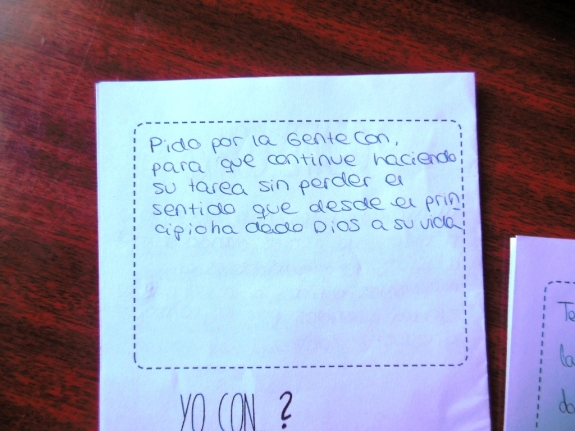 Pido por la Gente Con,
para que continue haciendo
su tarea sin perder el
sentido que desde el prin
cipio ha dado Dios a su vida
YO CON ?
Te
la
do